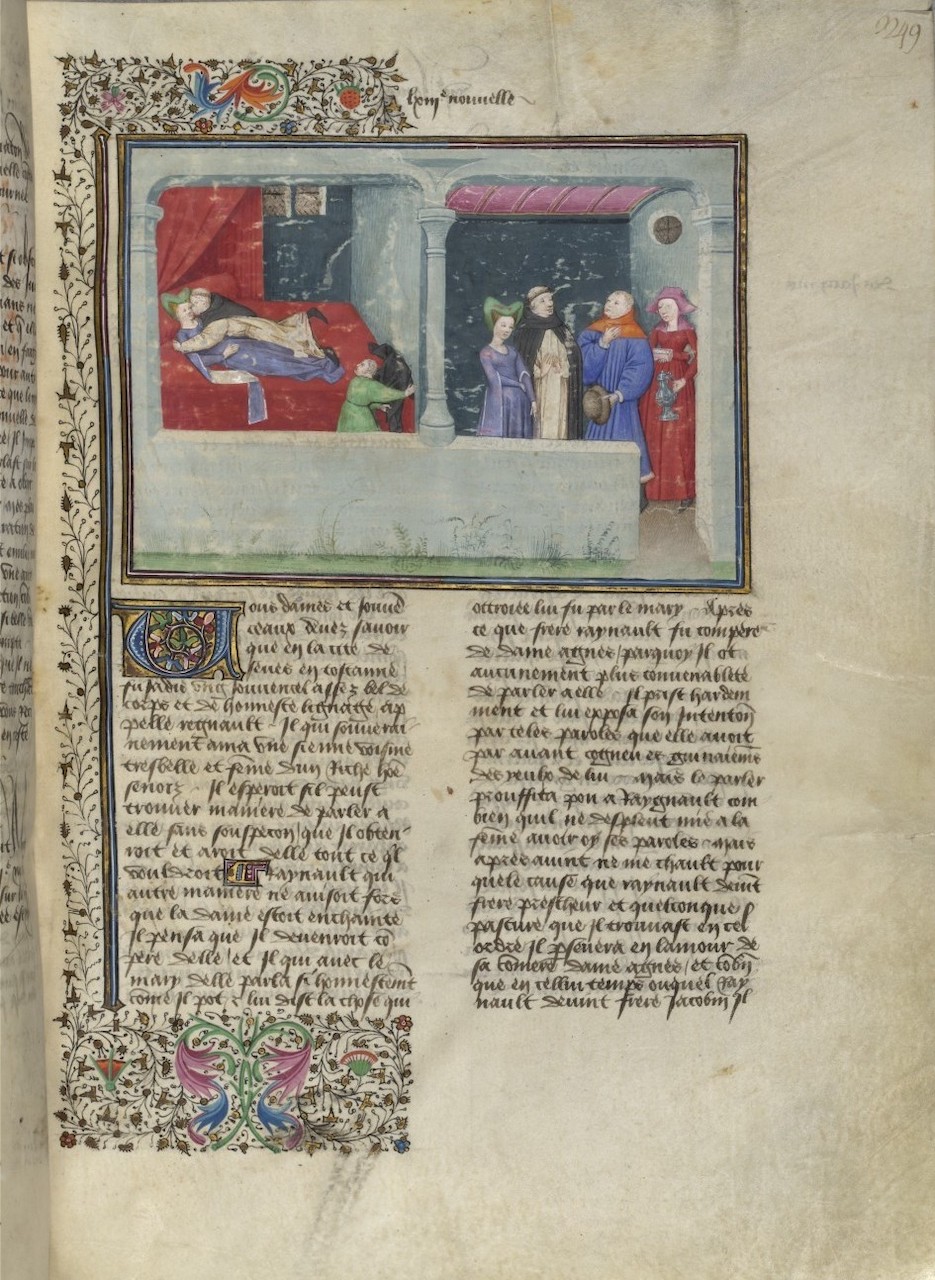 249
lxiij^e nouuelle
Uous dames et Jouue
ceaux deuez sauoir
que en la cite de
senes en toscanne
fu Jadis vng Jouuencel assez bel de
corps et de honneste lignage ap
pelle regnault Il qui souuerai
nement ama vne sienne voisine
tresbelle et feme dun riche hoe
Il esperoit sil peust
trouuer maniere de parler a
elle sans souspecon que Il obten
roit et aroit delle tout ce ql
vouldroit Et Raynault qui
autre maniere ne auisoit fors
que la dame estoit enchainte
Il pensa que Il deuenroit co
pere delle et Il qui auec le
mary delle parla si honnestemt
come Il pot lui dist la chose qui
ottroiee lui fu par le mary Apres
ce que frere raynault fu compere
de dame agnes parquoy Il ot
aucunement plus conuenablete
de parler a elle Il prist hardem
ment et lui exposa son Intenton
par teles paroles que elle auoit
par auant cogneu es
des yeulx de lui Mais le parler
prouffita pou a Raygnault com
bien quil ne despleut mie a la
feme auoir oy ses paroles Mais
apres auint ne me chault pour
quele cause que raynault deuint
frere prescheur et quelconque
pasture que Il trouuast en cel
ordre Il perseuera en lamour de
sa comere dame agnes et cobn
que en cellui temps ouquel Ray
nault deuint frere Jacobin Il